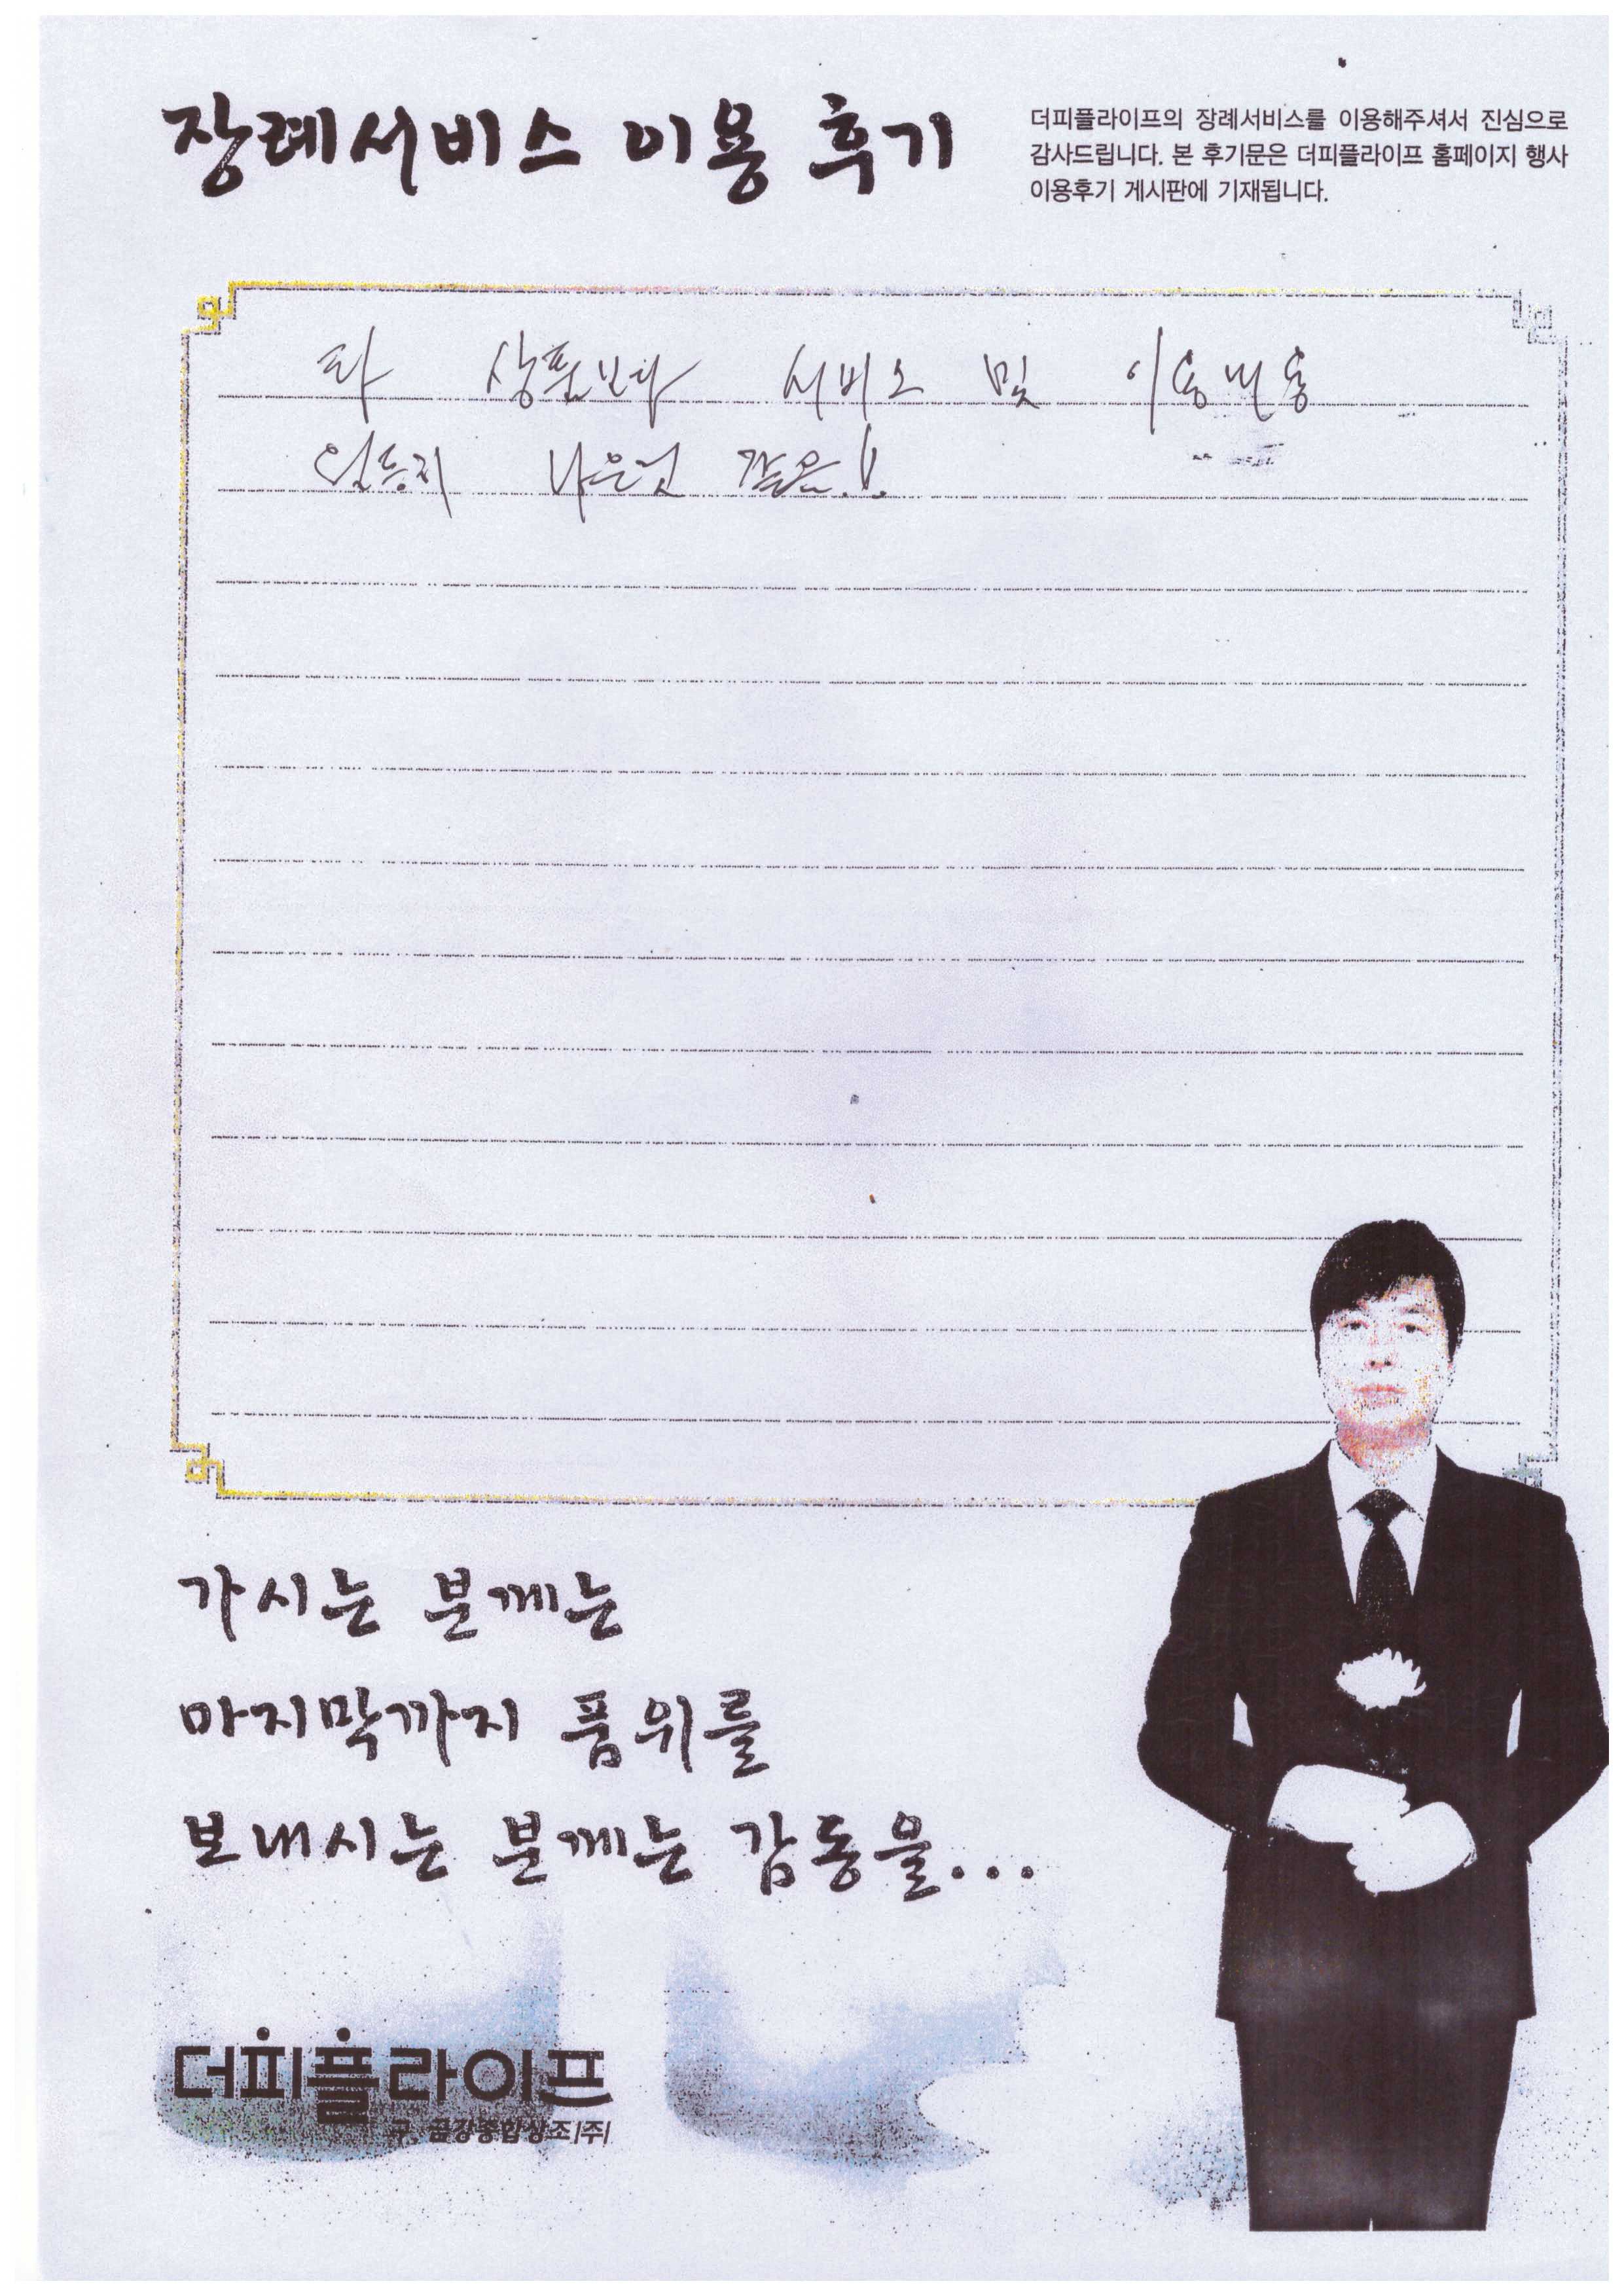 장례서비스 이용 후기
더피플라이프의 장례서비스를 이용해주셔서 진심으로
감사드립니다. 본 후기문은 더피플라이프 홈페이지 행사
이용후기 게시판에 기재됩니다.
타 상품보다 서비스 및 이용내용
월등히 나은것 같음.!!
가시는 분께는
마지막까지 품위를
보내시는 분께는 감동을...
더피플라이프
구. 금강종합상조(주)